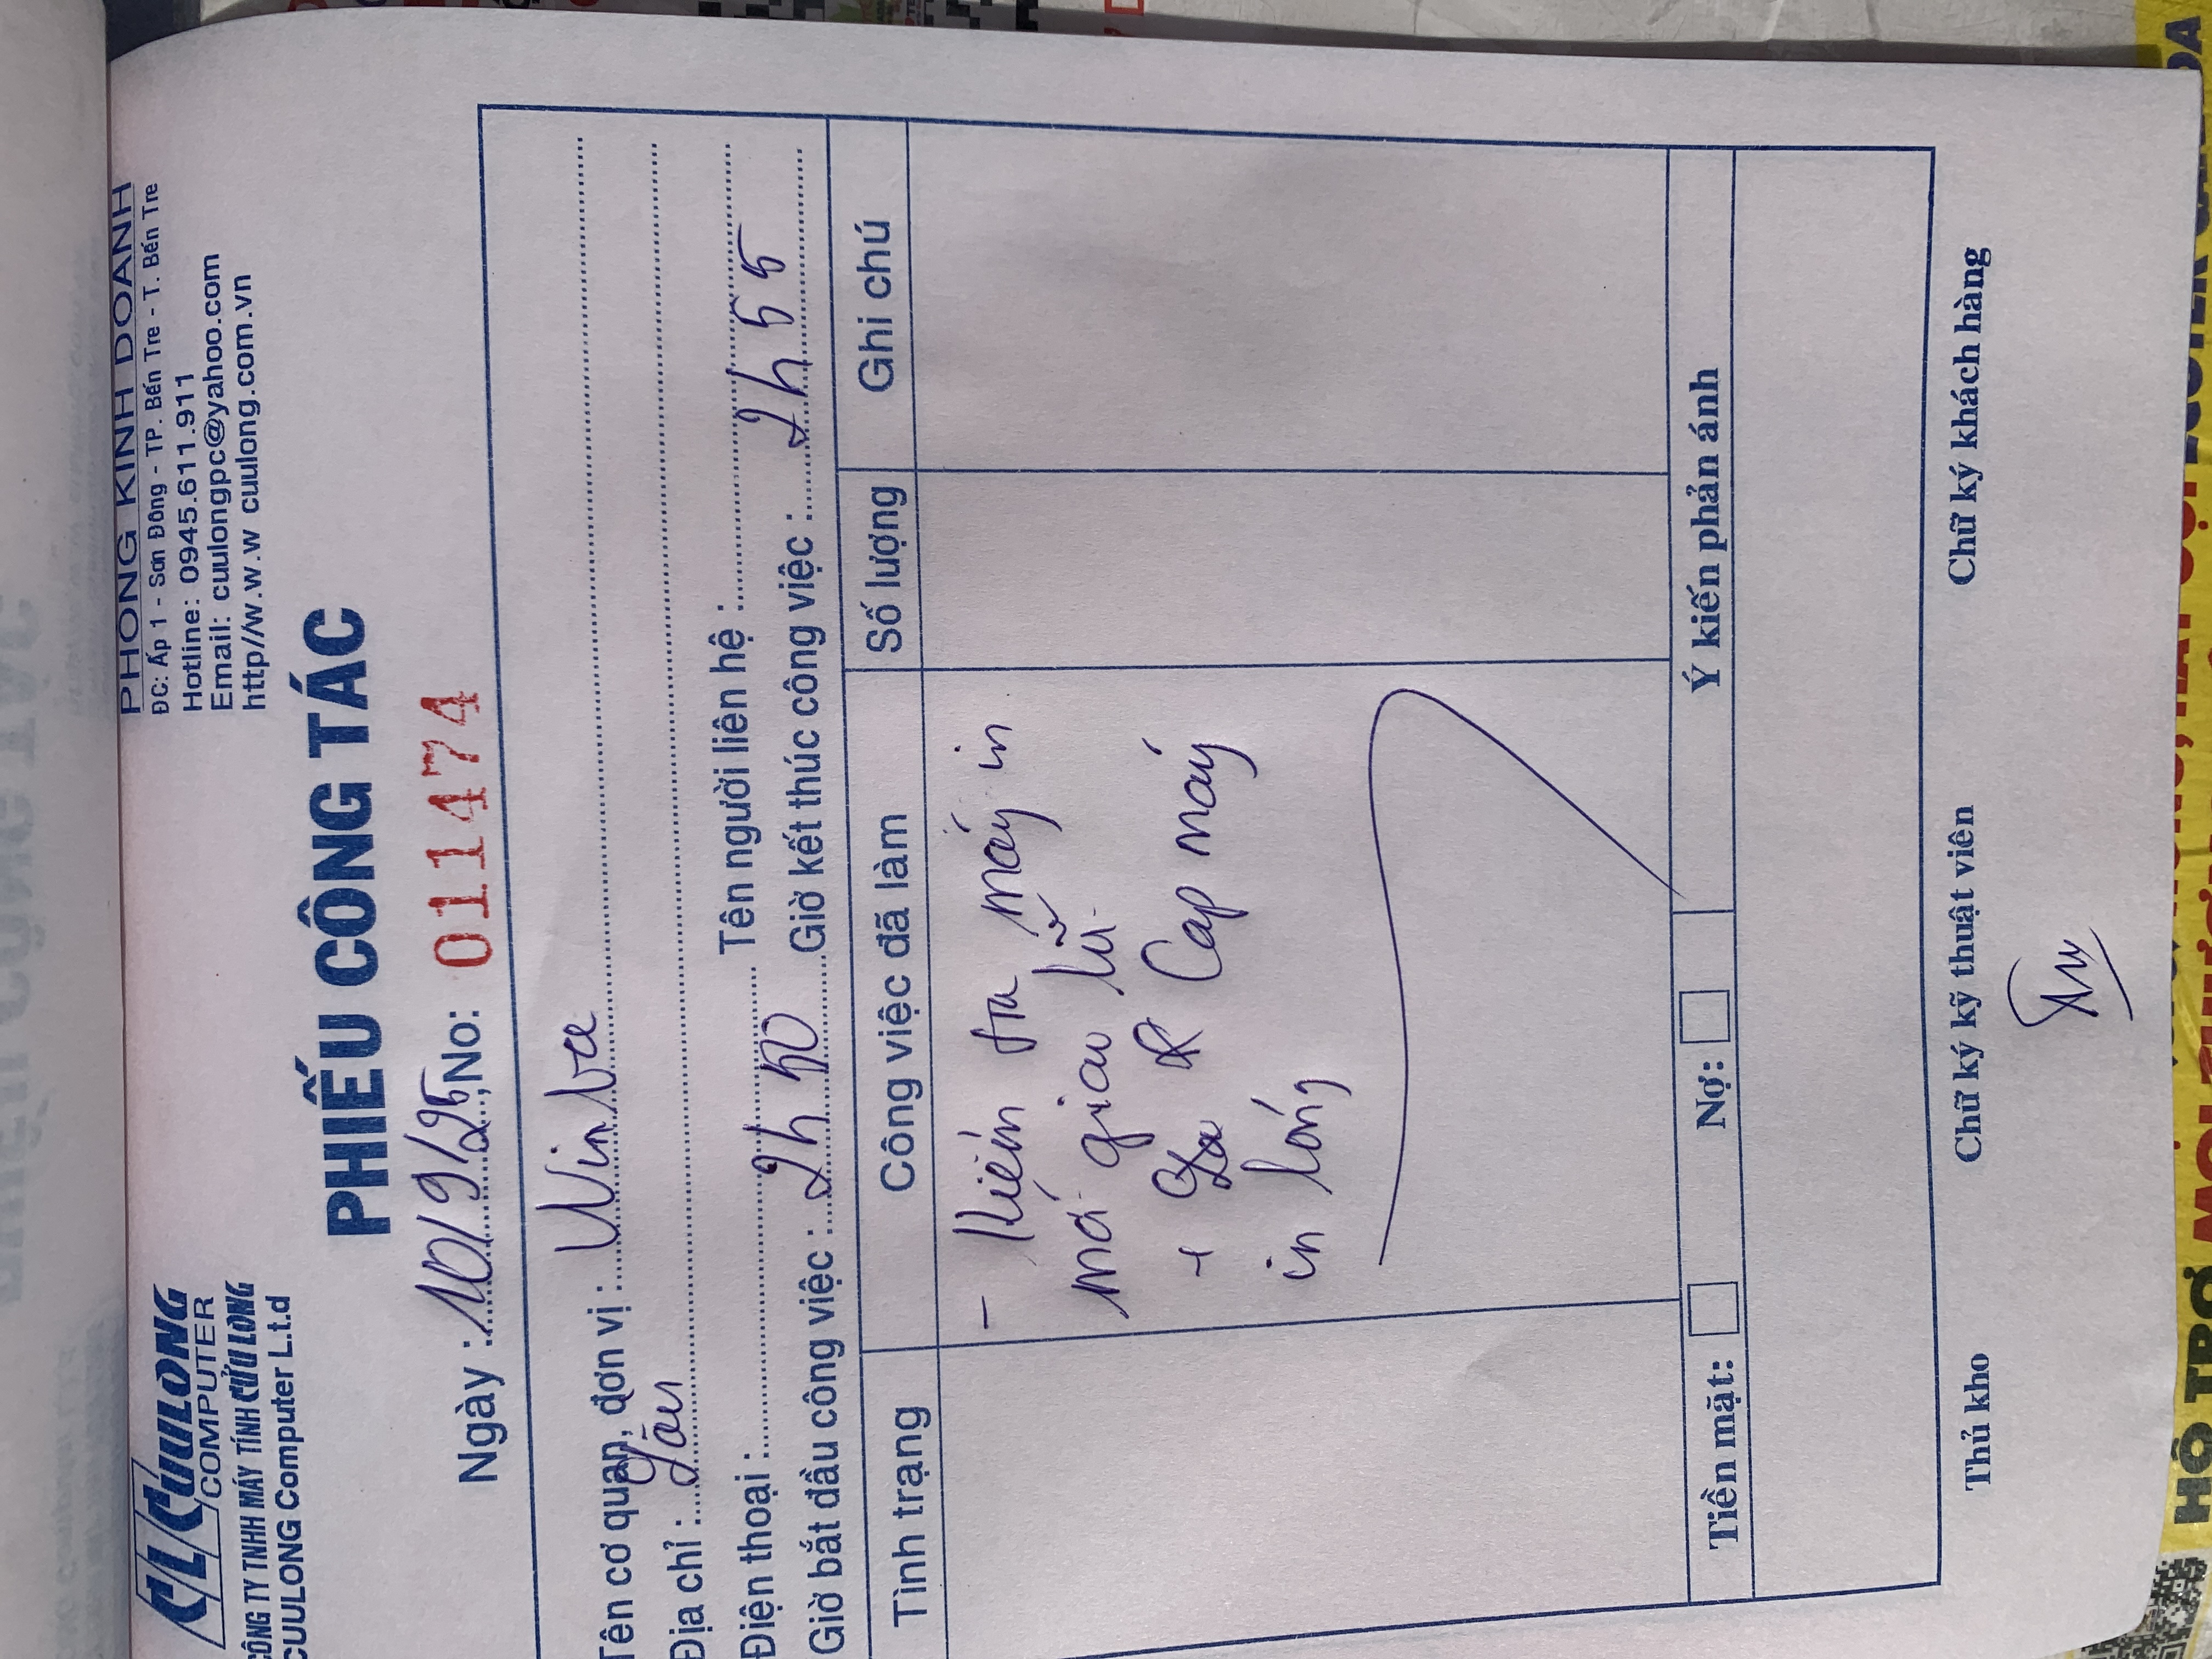 CL CUULONG
COMPUTER
CÔNG TY TNHH MÁY TÍNH CỬU LONG
CUULONG Computer L.t.d
PHÒNG KINH DOANH
ĐC: Ấp 1 - Sơn Đông - TP. Bến Tre - T. Bến Tre
Hotline: 0945.611.911
Email: cuulongpc@yahoo.com
http//w.w.w cuulong.com.vn
PHIẾU CÔNG TÁC
Ngày : 10/9/25, No: 011474
Tên cơ quan, đơn vị : Vinba
Địa chỉ :
Điện thoại : Tên người liên hệ :
Giờ bắt đầu công việc : 2h50 Giờ kết thúc công việc : 2h55
Tình trạng Công việc đã làm Số lượng Ghi chú
- Kiểm tra máy in
má giao lữ
+ Cap máy
in
Tiền mặt: Nợ: Ý kiến phản ánh
Thủ kho Chữ ký kỹ thuật viên Chữ ký khách hàng
HỖ TRỢ